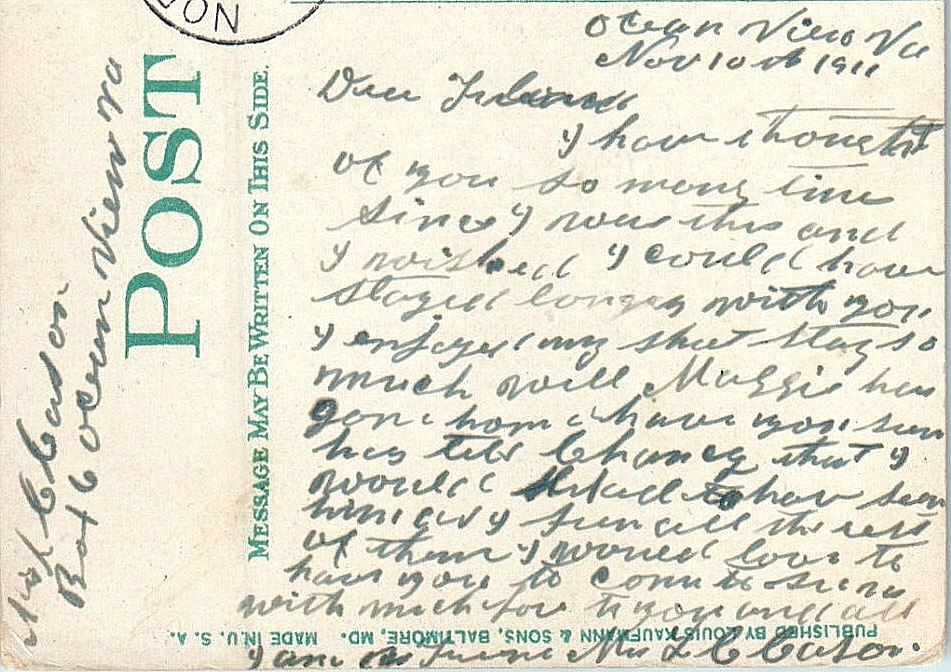 Ocean View Va
Nov 10th 1911
Dear Friend
I have thought
of you so many time
since I was this and
I wished I could have
stayed longer with you
I enjoyed my short stay so
much well Maggie has
gone home have you seen
her tell Chancy that I
would have seen
him as I seen all the rest
of them I would love to
have you to come to see us
with much love to you and all
I am as Mrs L C Cason.
Box 6 Ocean View Va
L C Cason
POST
MESSAGE MAY BE WRITTEN ON THIS SIDE.
PUBLISHED BY LOUIS KAUFMANN & SONS, BALTIMORE, MD. MADE IN U. S. A.
ON